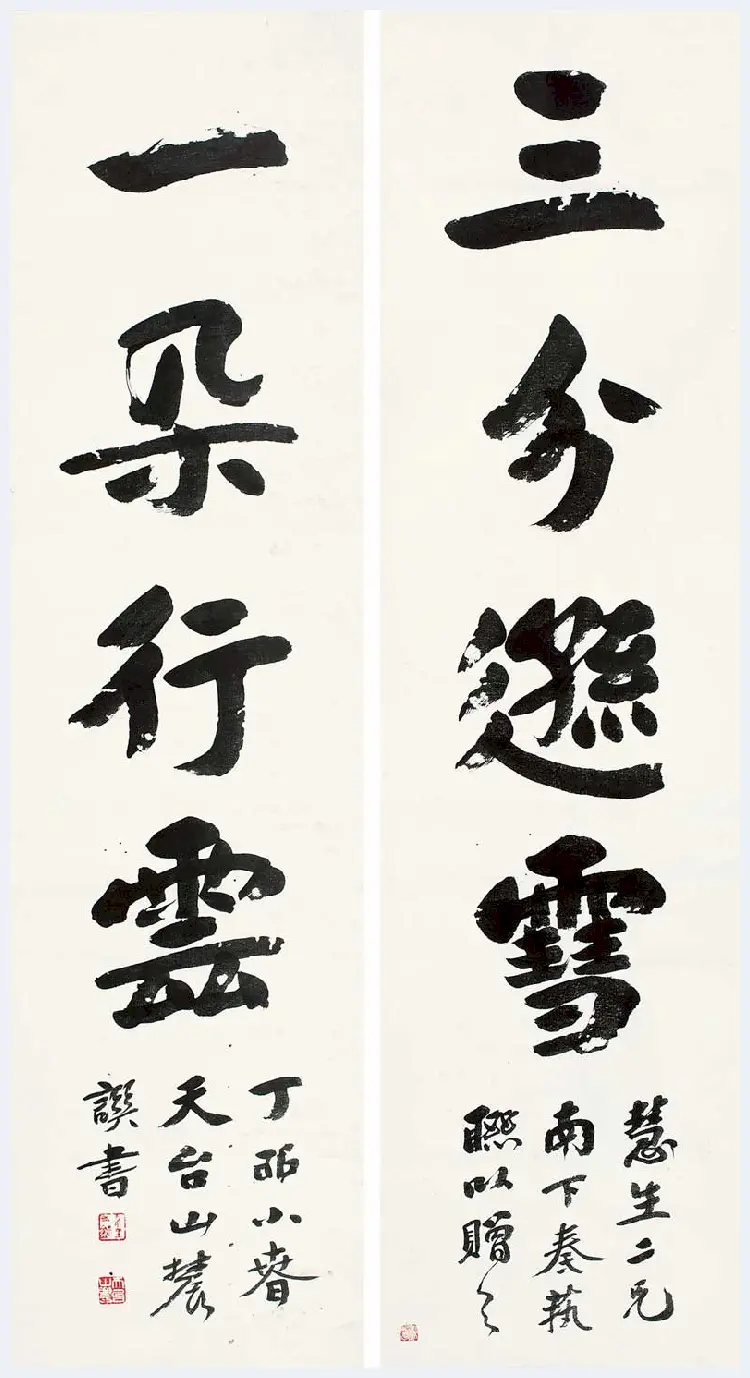 三分遜雪
慧生二兄
南下奏蓺
聯以贈之
一朵行雲
丁卯小春
天台山農
譔書